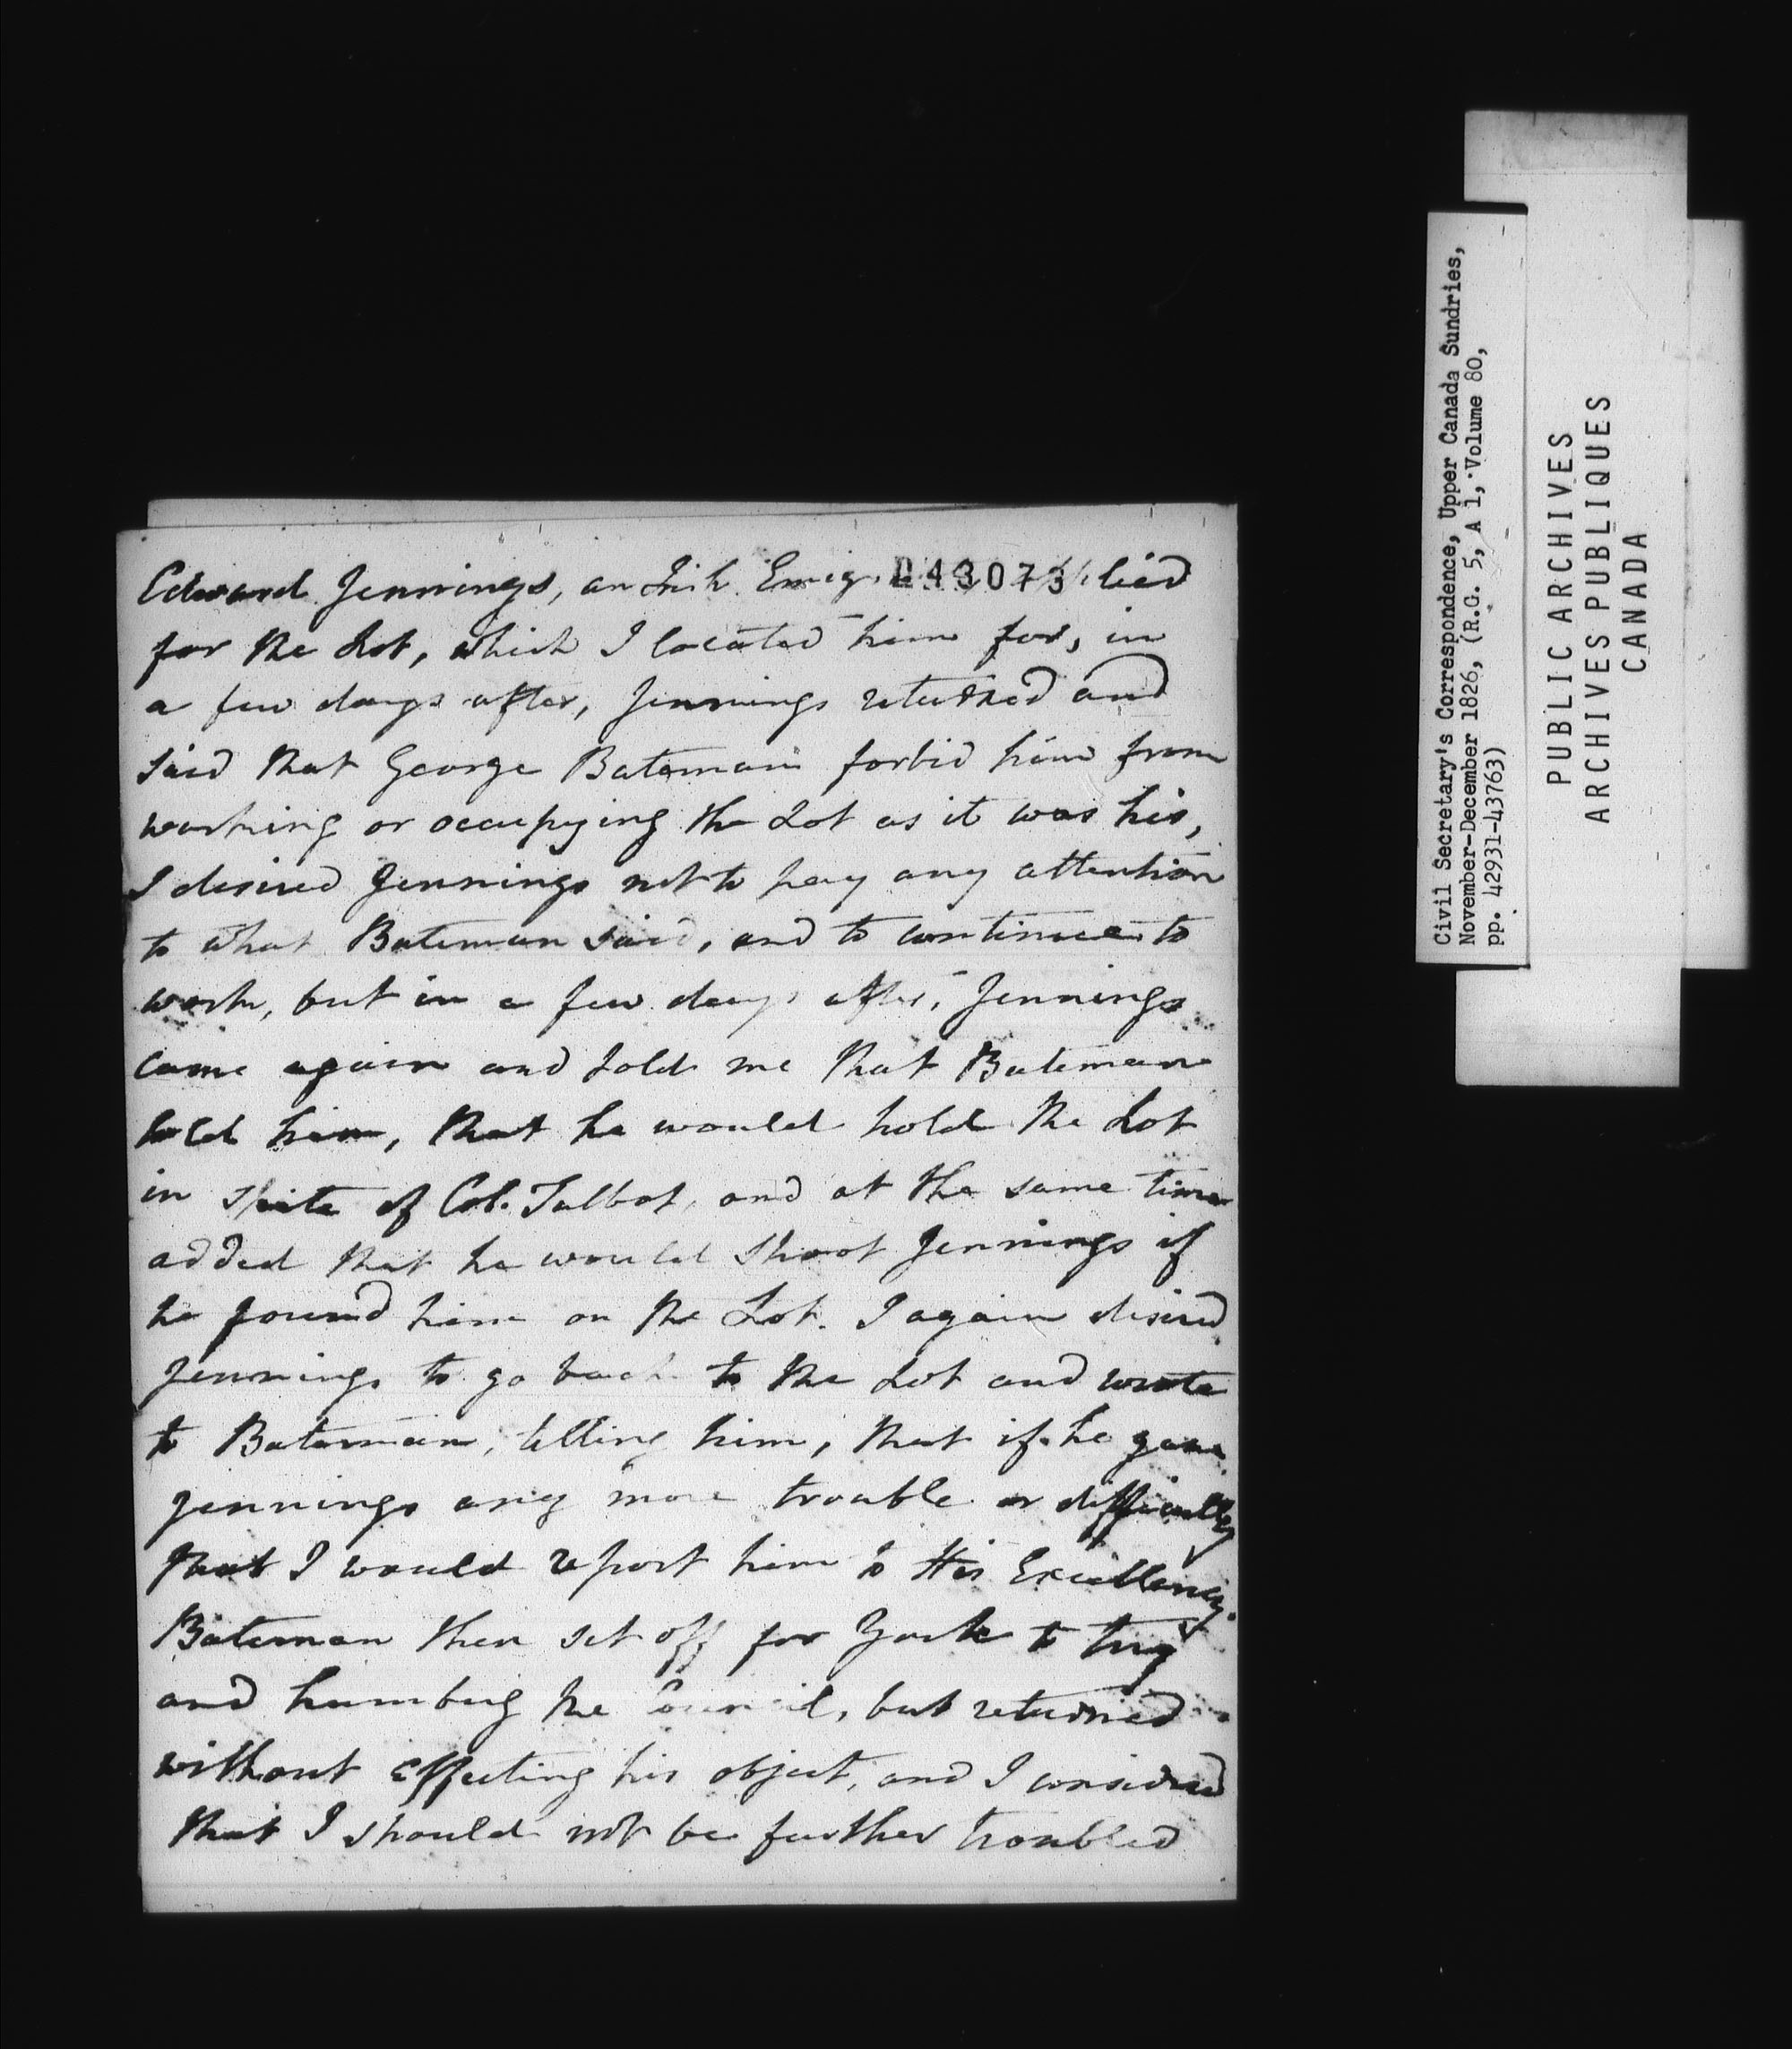 Edward Jennings, an Irish Emig. 043073 lied
for the Lot, which I located him for, in
a few days after, Jennings returned and
said that George Bateman forbid him from
working or occupying the Lot as it was his,
I desired Jennings not to pay any attention
to what Bateman said, and to continue to
work, but in a few days after, Jennings
came again and told me that Bateman
told him, that he would hold the Lot
in spite of Col. Talbot, and at the same time
added that he would shoot Jennings if
he found him on the Lot. I again desired
Jennings to go back to the Lot and wrote
to Bateman, telling him, that if he gave
Jennings any more trouble or difficulty
that I would report him to His Excellency.
Bateman then set off for York to try
and humbug the Council, but returned
without effecting his object, and I considered
that I should not be further troubled
Civil Secretary's Correspondence, Upper Canada Sundries,
November-December 1826, (R.G. 5, A 1, Volume 80,
pp. 42931-43763)
PUBLIC ARCHIVES
ARCHIVES PUBLIQUES
CANADA